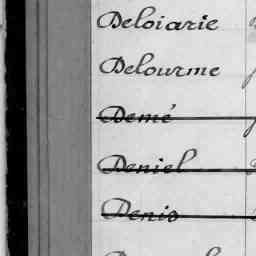 Deloiarie
Delourme
Demé
Deniel
Denis